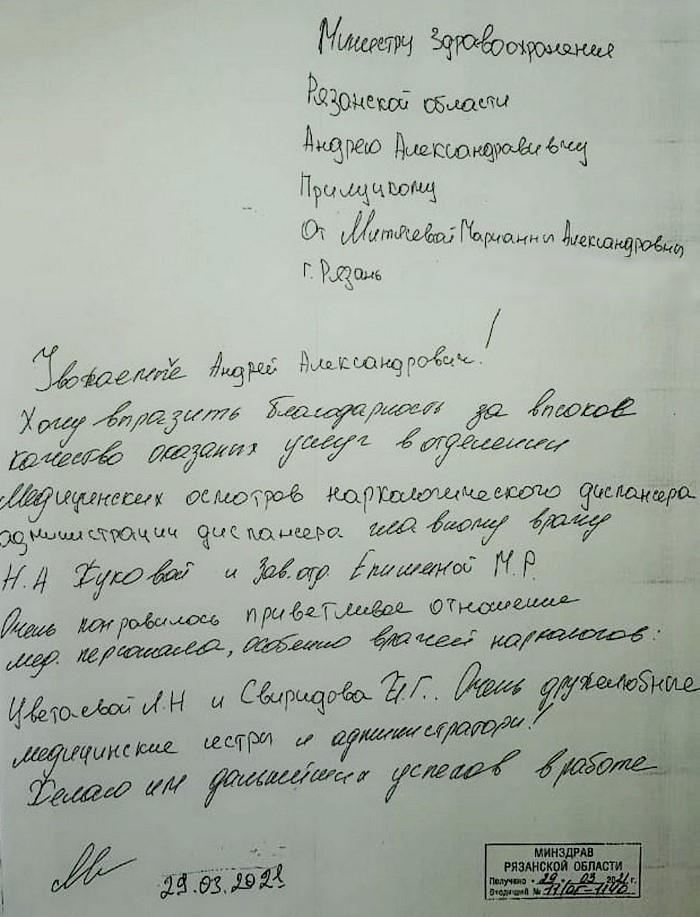 Министру Здравоохранения
Рязанской области
Андрею Александравивчу
Прилуцкому
От Митясевой Марианны Александровны
г. Рязань
Уважаемый Андрей Александрович!
Хочу выразить благодарность за высокое
качество оказаных услуг в отделении
Медицинских осмотров наркологического диспансера
администрации диспансера главному врачу
Н.А Жуковой и Зав. отд. Епишиной М.Р.
Очень понравилось приветливое отношение
мед. персонала, особенно врачей наркологов:
Цветаевой Л.Н и Свиридова И.Г.. Очень дружелюбные
медицинские сестры и администраторы!
Желаю им дальнейших успехов в работе
29.03.2021
МИНЗДРАВ
РЯЗАНСКОЙ ОБЛАСТИ
Получено « 29 » 03 2021 г.
Входящий №